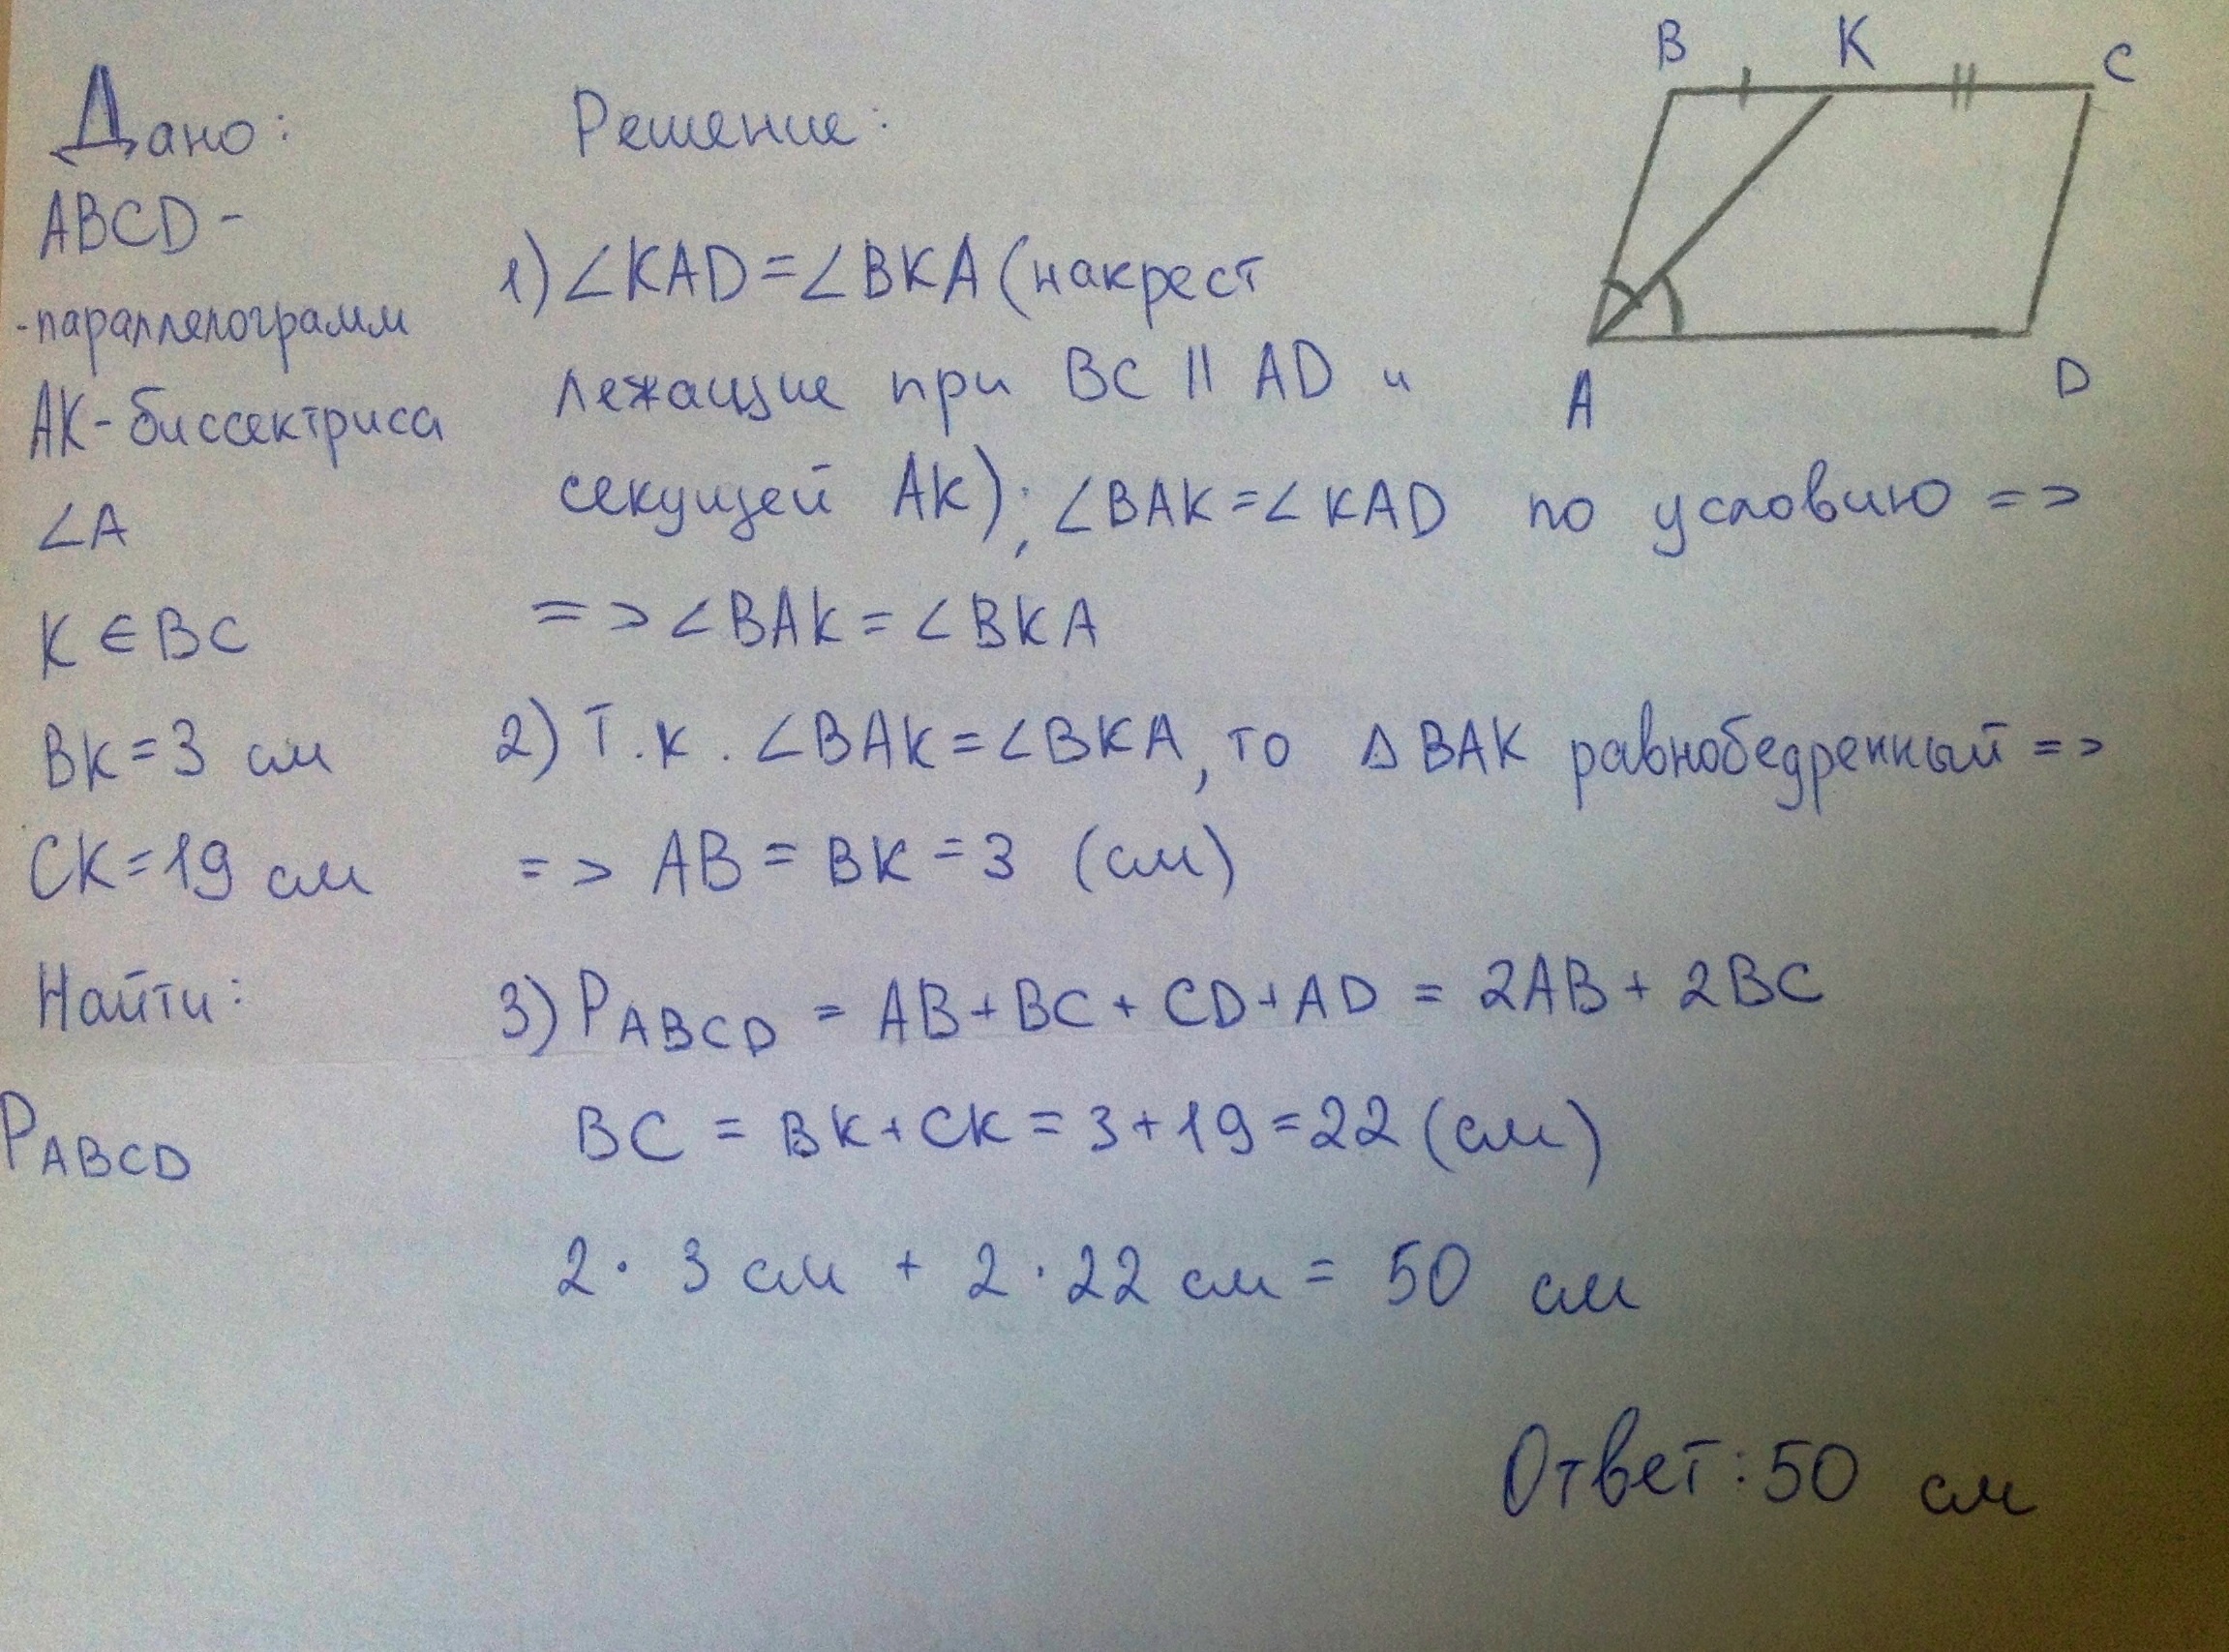 B K C
A D
Дано:
ABCD -
- параллелограмм
AK - биссектриса
∠A
K ∈ BC
BK = 3 см
CK = 19 см
Найти:
P ABCD
Решение:
1) ∠KAD = ∠BKA (накрест
лежащие при BC || AD и
секущей AK); ∠BAK = ∠KAD по условию =>
=> ∠BAK = ∠BKA
2) Т.к. ∠BAK = ∠BKA, то Δ BAK равнобедренный =>
=> AB = BK = 3 (см)
3) P ABCD = AB + BC + CD + AD = 2AB + 2BC
BC = BK + CK = 3 + 19 = 22 (см)
2 · 3 см + 2 · 22 см = 50 см
Ответ: 50 см